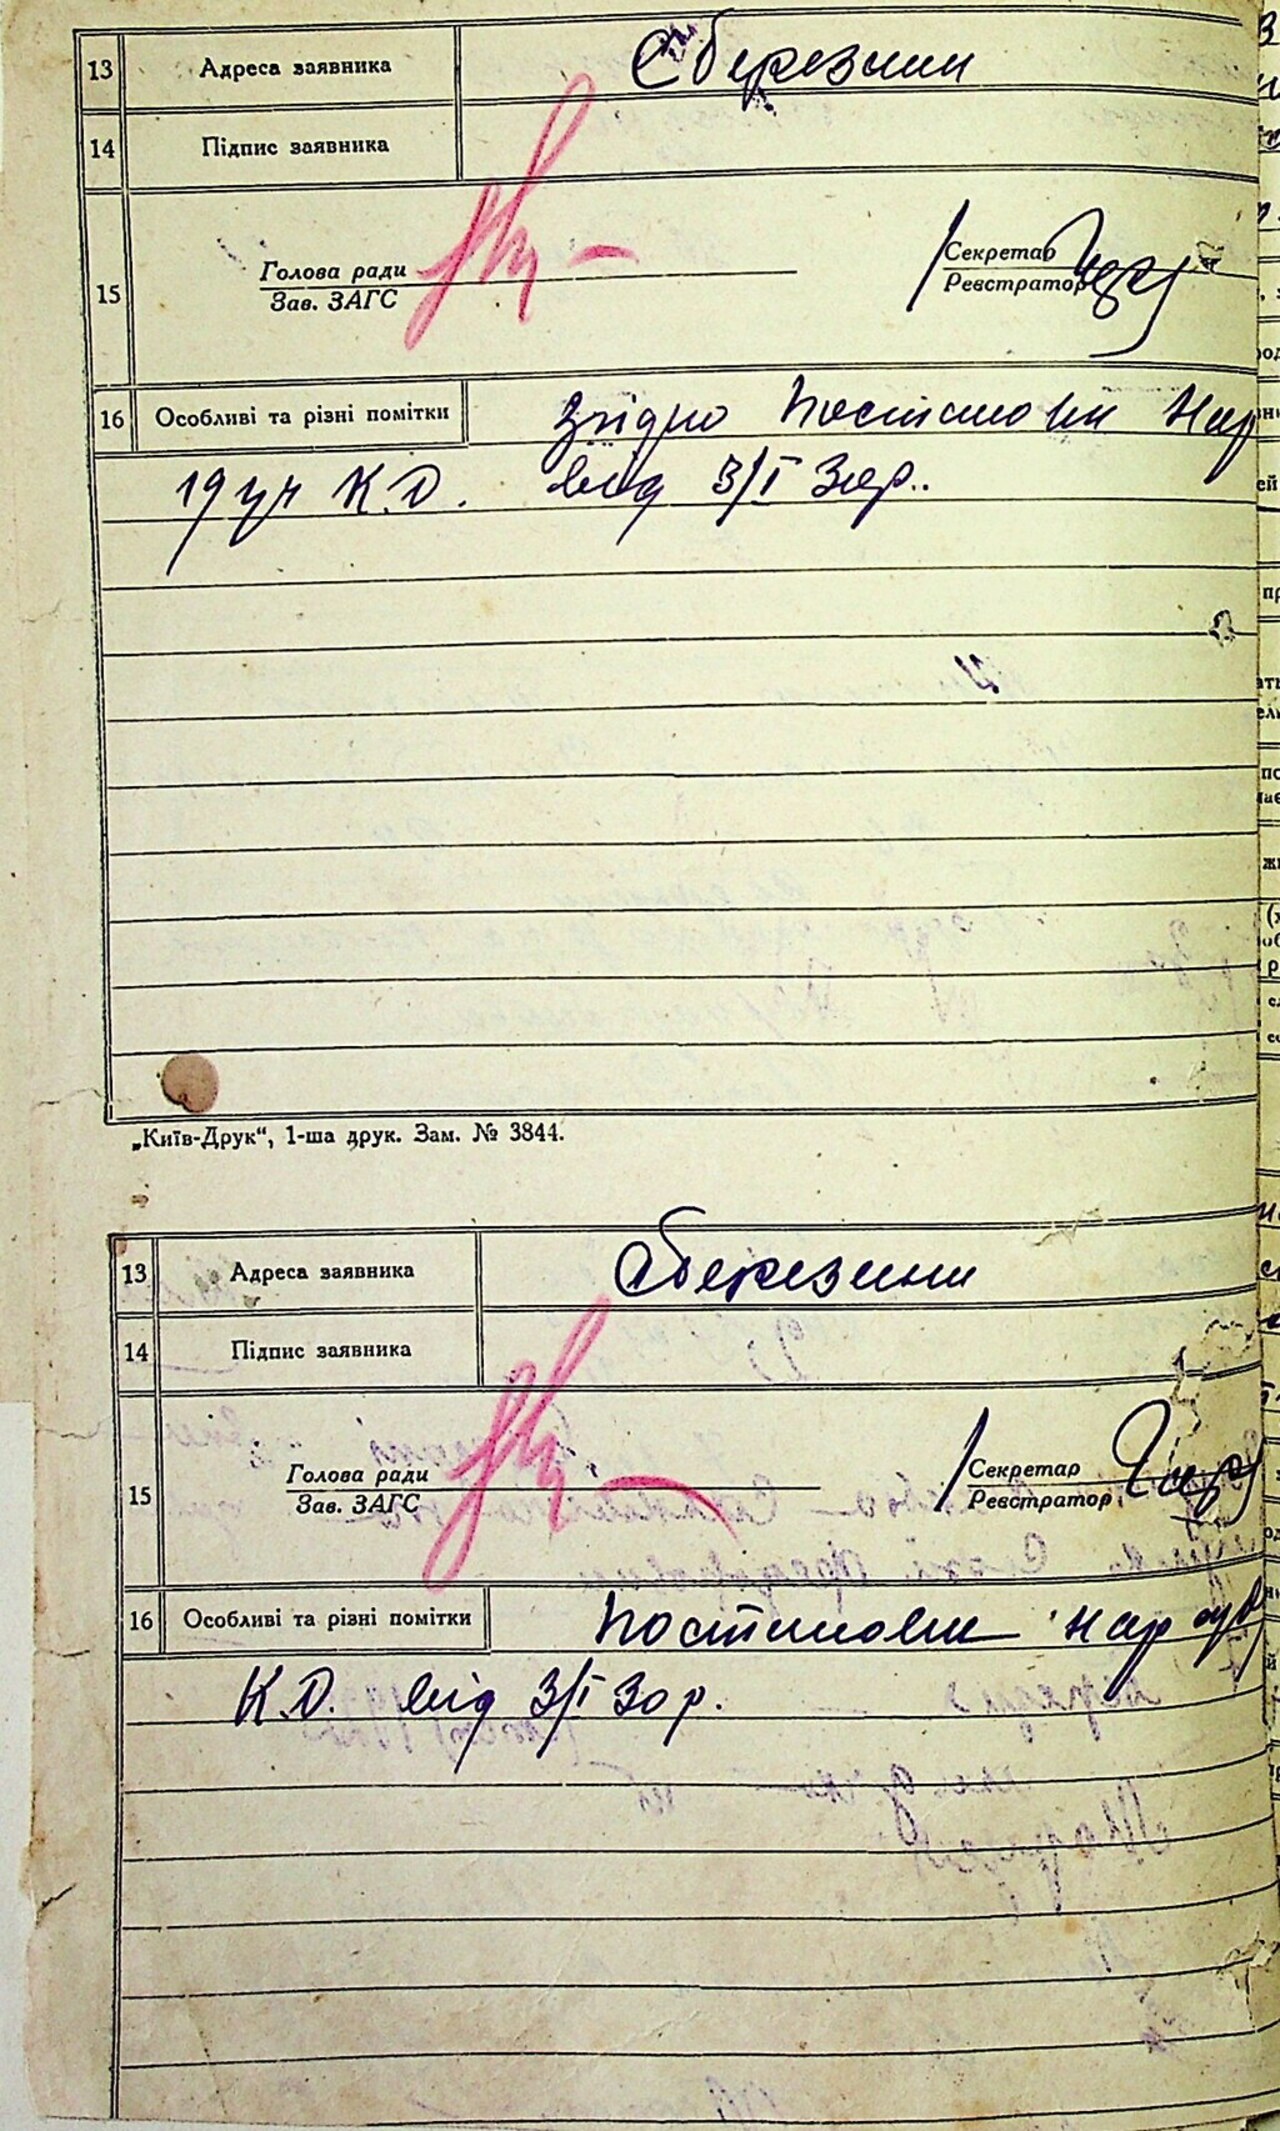 13 Адреса заявника с Березини
14 Підпис заявника
15 Голова ради Секретар
Зав. ЗАГС Реєстратор
16 Особливі та різні помітки Згідно Постанови Нар
19 уч К.О. від 3/I 30р.
„Київ-Друк“, 1-ша друк. Зам. № 3844.
13 Адреса заявника с Березини
14 Підпис заявника
15 Голова ради Секретар
Зав. ЗАГС Реєстратор
16 Особливі та різні помітки Постанови нар
К.О. від 3/I 30 р.